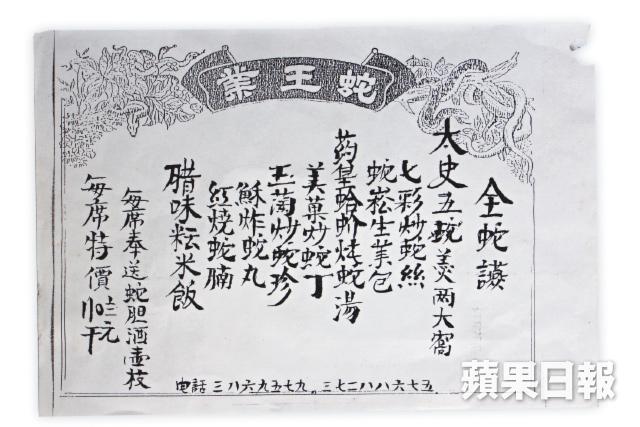 蛇王業
全蛇讌
太史五蛇羹兩大窩
七彩炒蛇絲
蛇崧生菜包
药堡蛤蚧炖蛇湯
美菓炒蛇丁
玉蘭炒蛇珍
酥炸蛇丸
紅燒蛇腩
腊味米飯
每席奉送蛇胆酒壹枝
每席特價元
电話三八六九五七九。三七二八八六七五
蘋果日報